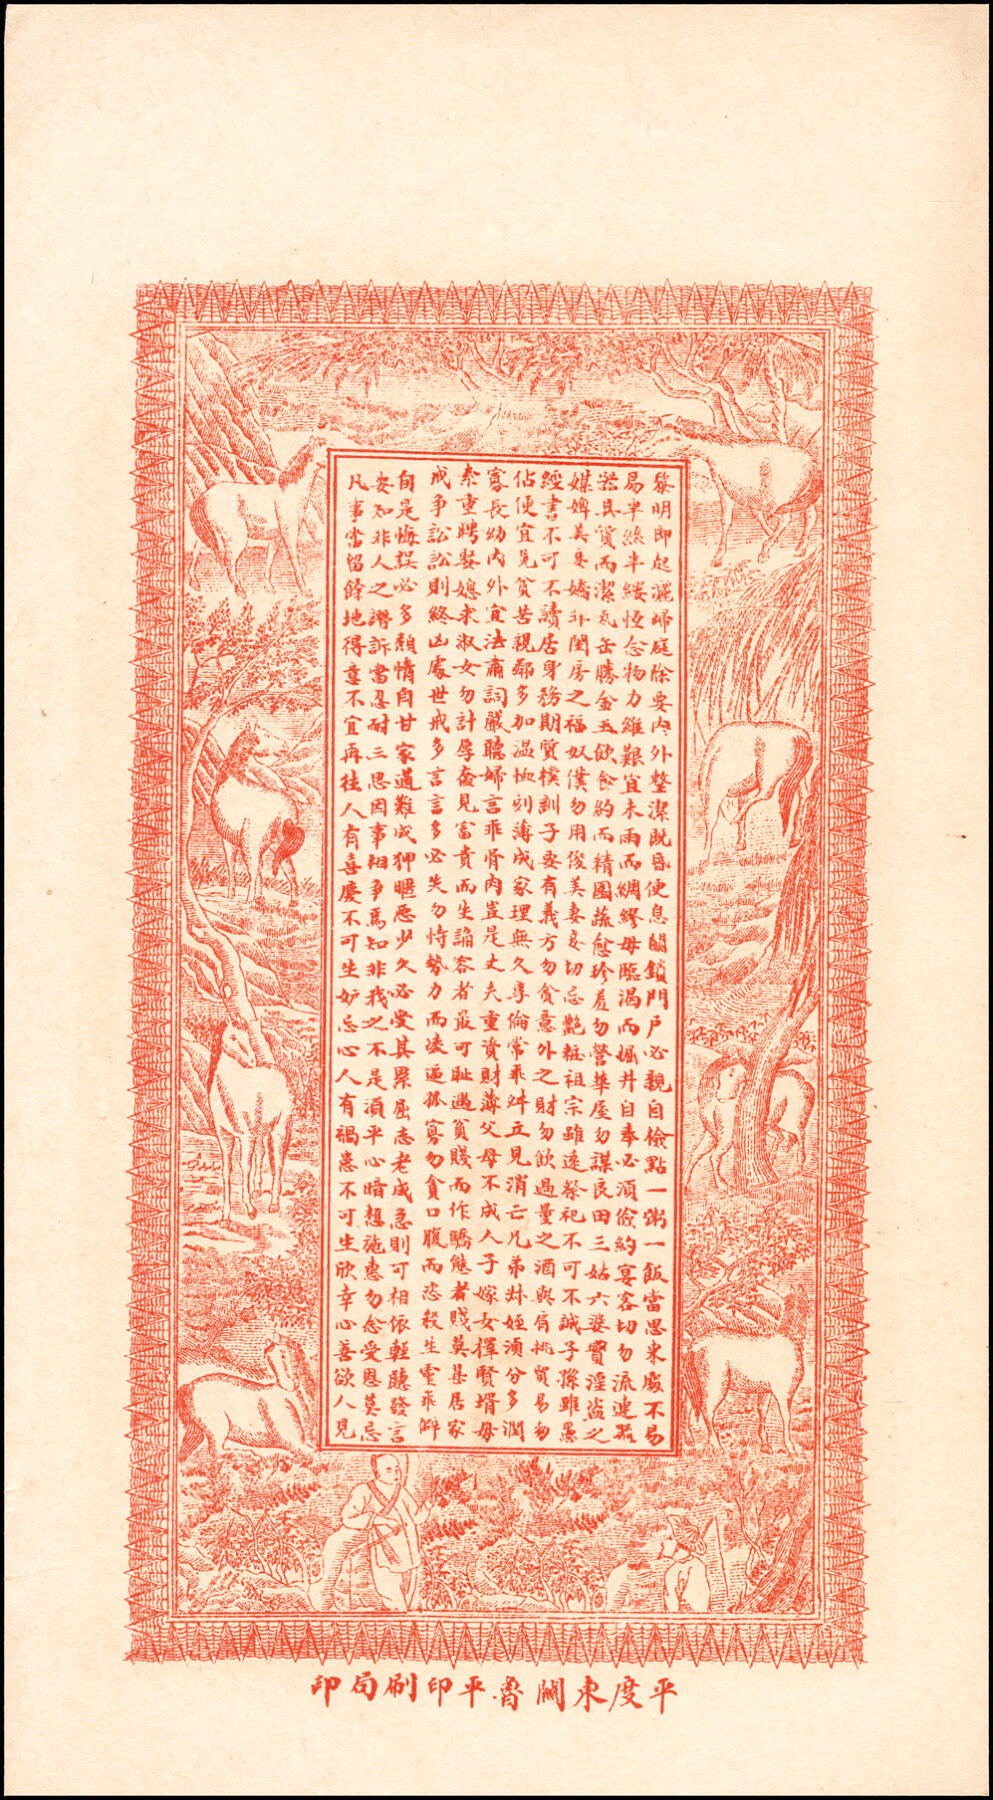 黎明即起灑掃庭除要內外整潔既昏便息關鎖門戶必親自檢點一粥一飯當思來處不易
易半絲半縷恆念物力維艱宜未雨而綢繆毋臨渴而掘井自奉必須儉約宴客切勿流連器
器具質而潔瓦缶勝金玉飲食約而精園蔬愈珍羞勿營華屋勿謀良田三姑六婆實淫盜之
媒婢美妾嬌非閨房之福奴僕勿用俊美妻妾切忌艷粧祖宗雖遠祭祀不可不誠子孫雖愚
經書不可不讀居身務期質樸訓子要有義方勿貪意外之財勿飲過量之酒與肩挑貿易勿
佔便宜見貧苦親鄰多加溫恤刻薄成家理無久享倫常乖舛立見消亡兄弟叔姪須分多潤
寡長幼內外宜法肅詞嚴聽婦言乖骨肉豈是丈夫重資財薄父母不成人子嫁女擇賢壻毋
索重聘娶媳求淑女勿計厚奩見富貴而生諂容者最可恥遇貧賤而作驕態者賤莫甚居家
戒爭訟訟則終凶處世戒多言言多必失勿恃勢力而凌逼孤寡勿貪口腹而恣殺生靈乖僻
自是悔誤必多頹惰自甘家道難成狎暱惡少久必受其累屈志老成急則可相依輕聽發言
安知非人之譖訴當忍耐三思因事相爭焉知非我之不是須平心暗想施惠勿念受恩莫忘
凡事當留餘地得意不宜再往人有喜慶不可生妒忌心人有禍患不可生欣幸心善欲人見
平度東關魯平印刷局印